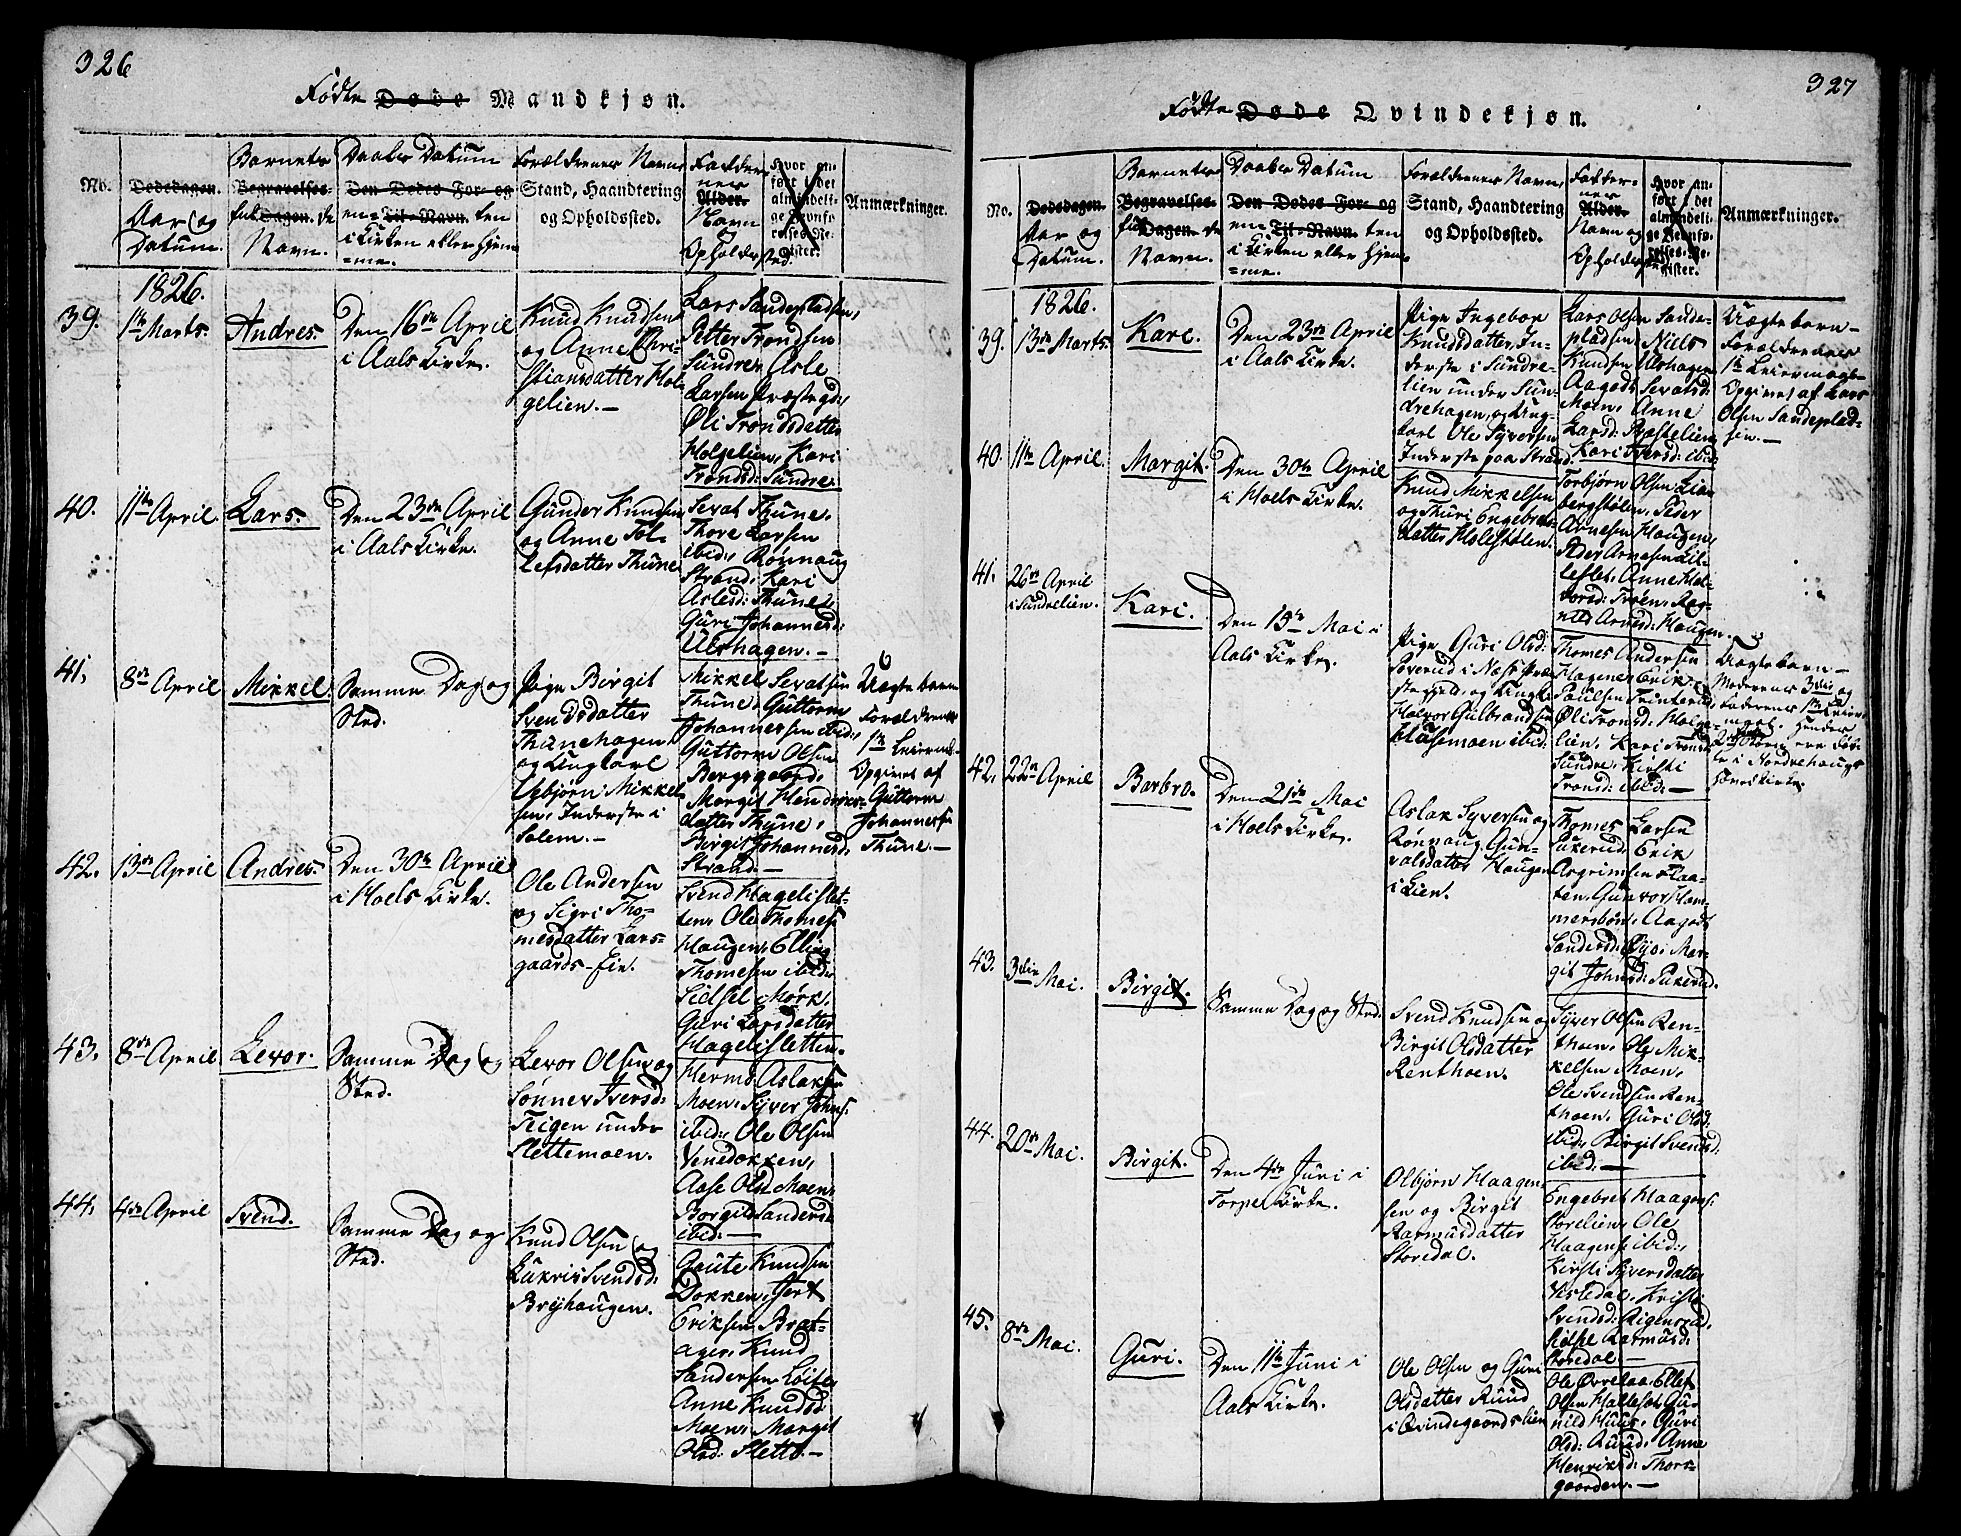 326
Fødte Døde Mandkjøn.
No.
Dødsdagen.
Aar og
Datum.
Barnets
Begravelses-
fulde Dagen.
Navn.
Daabs Datum
Den Dødes For- og
Til-Navn.
i Kirken eller Hjem-
me.
Forældrenes Navn,
Stand, Haandtering
og Opholdssted.
Fadder-
nes
Alder.
Navn
og
Opholdssted.
Hvor an-
ført i det
almindeli-
ge Jevnfø-
relses-Re-
gister.
Anmærkninger.
1826.
39.
1ste Marts.
Andres.
Den 16de April
i Aals Kirke.
Knud Knudsen
og Anne Chri-
stiansdatter Hol-
gelien.-
Lars Sandepladsen,
Petter Trondsen
Sundre, Asle
Larsen Præstegd:,
Øli Trondsdatter
Holgelien, Kari
Trondsd: Sundre.
40.
11te April.
Lars.
Den 23de April
i Aals Kirke.
Gunder Knudsen
og Anne Tol-
lefsdatter Thune
Sevat Thune,
Thore Larsen
ibid:, Rønnaug
Strand, Kari
Aslesd: Thune,
Guri Johannesd:
Ulshagen.-
41.
8de April
Mikkel
Samme Dag og
Sted.
Pige Birgit
Svendsdatter
Thunehagen
og Ungkarl
Asbjørn Mikkel-
sen, Inderste i
Solem.-
Mikkel Sevatsen
Thune, Guttorm
Johannessen ibid:,
Guttorm Olsen
Berggaard,
Margit Hendrics-
datter Thune,
Birgit Johannesd:
Strand.-
Uægte barn
Forældrenes
1ste Leierm-
Opgivet af
Guttorm
Johannessen
Thune.-
42.
13de April
Andres.
Den 30te April
i Hoels Kirke.
Ole Andersen
og Sigri Tho-
mesdatter Lars-
gaards-Eie.
Svend Hagelislet-
ten, Ole Thomes:
Haugen, Elling
Thomesen ibid:,
Sidsel Mørk,
Guri Larsdatter
Hageliesletten.
43.
8de April
Levor.
Samme Dag og
Sted.
Levor Olsen og
Sønnev Iversd:
Teigen under
Slettemoen.
Hermo Aslaksen
Moen, Syver Johns:
ibid:, Ole Olsen
Venedokken,
Aase Olsd: Moen,
Borgild Sandersd:
ibid.-
44.
4de April
Svend.
Samme Dag og
Sted.
Knud Olsen og
Lukris Svendsd:
Bryhaugen.
Goute Knudsen
Dokken, Jert
Eriksen Brat-
ager, Knud
Sandersen Løite
Anne Knudsd
Moen, Margit
Olsd: Slette.-
327
Fødte Døde Qvindekjøn.
No.
Dødsdagen.
Aar og
Datum.
Barnets
Begravelses-
Dagen.
Navn.
Daabs Datum
Den Dødes For- og
Til-Navn.
i Kirken eller Hjem-
me.
Forældrenes Navn,
Stand, Haandtering
og Opholdssted.
Fadder-
nes
Alder.
Navn og
Opholdssted
Hvor an-
ført i det
almindeli-
ge Jevnfø-
relses-Re-
gister.
Anmærkninger.
1826.
39.
13de Marts.
Kari.
Den 23de April
i Aals Kirke.
Pige Ingebor
Knudsdatter, In-
derste i Sundre-
lien under Sun-
drehagen, og Ung-
karl Ole Syversen
Inderste paa Strand
Lars Olsen Sande-
pladsen, Niels
Knudsen Ulshagen
Aagodt Sevatsd:
Moen, Anne
Larsd: Præstelien
Kari Iversd: ibid
Uægte barn-
Forældrenes
1ste Leiermaal-
Opgivet af Lars
Olsen Sandeplad-
sen.-
40.
11te April.
Margit.
Den 30te April
i Hoels Kirke.
Knud Mikkelsen
og Thuri Engebrets-
datter Holestølen.
Torbjørn Olsen Lien
bergstølen, Peder
Arnesen Haugen,
Peder Arnesen Lil-
leslet, Anne Hal-
vorsd: Trøen, Rag-
nild Arnesd: Haugen.
41.
26de April
i Sundrelien.
Kari.
Den 15de Mai i
Aals Kirke.
Pige Guri Olsd:
Søverud i Næss Præ-
stegjeld, og Ungk:
Halvor Gulbrandsen
Klusemoen ibid.
Thomes Andersen
Hagene, Erik
Paulsen Trinterud,
Øli Tronsd: Holge-
lien, Kari Tronsd
Sundre, Kirsti
Tronsd: ibid:-
Uægte barn-
Moderens 3die og
Faderens 1ste Leier-
maal. Hendes
2 børn ere Føb-
te i Nordrehaugs
Hovedkirke.
42.
22de April
Barbro.
Den 21de Mai
i Hoels Kirke.
Aslak Syversen og
Rønnaug Gun-
valsdatter Haugen
i Lien.
Thomes Larsen
Sukerud, Erik
Asgrimsen Plaa-
ten, Gunvor Ham-
mersbøn, Aagodt
Sandersd: Bye, Mar-
git Johnsd: Sukerud.
43.
3die Mai.
Birgit.
Samme Dag og Sted.
Svend Knudsen og
Birgit Olsdatter
Renthoen.
Syver Olsen Ren-
thoen, Ole Mik-
kelsen Moen,
Ole Svendsen Ren-
thoen, Guri Olsd:
ibid:, Birgit Svendsd,
ibid:-
44.
20de Mai.
Birgit.
Den 4de Juni i
Torpe Kirke.
Olbjørn Haagen-
sen og Birgit
Rasmusdatter
Storedal.
Engebret Haagens:
Storelien, Ole
Haagense ibid:,
Kirsti Syversdatter
Visledal, Kristi
Svendsd: Eigensrud,
Sidsel Rasmusd:
Storedal.-
45.
8de Mai.
Guri.
Den 11te Juni i
Aals Kirke.
Ole Olsen og Guri
Olsdatter Ruud
i Qvindegaardslien
Ole Øvrelaa, Ellef
Olsen Hallesøt, Gun-
nild Huus, Guri
Olsd: Ruud, Anne
Henriksd: Thors-
gaarden.-